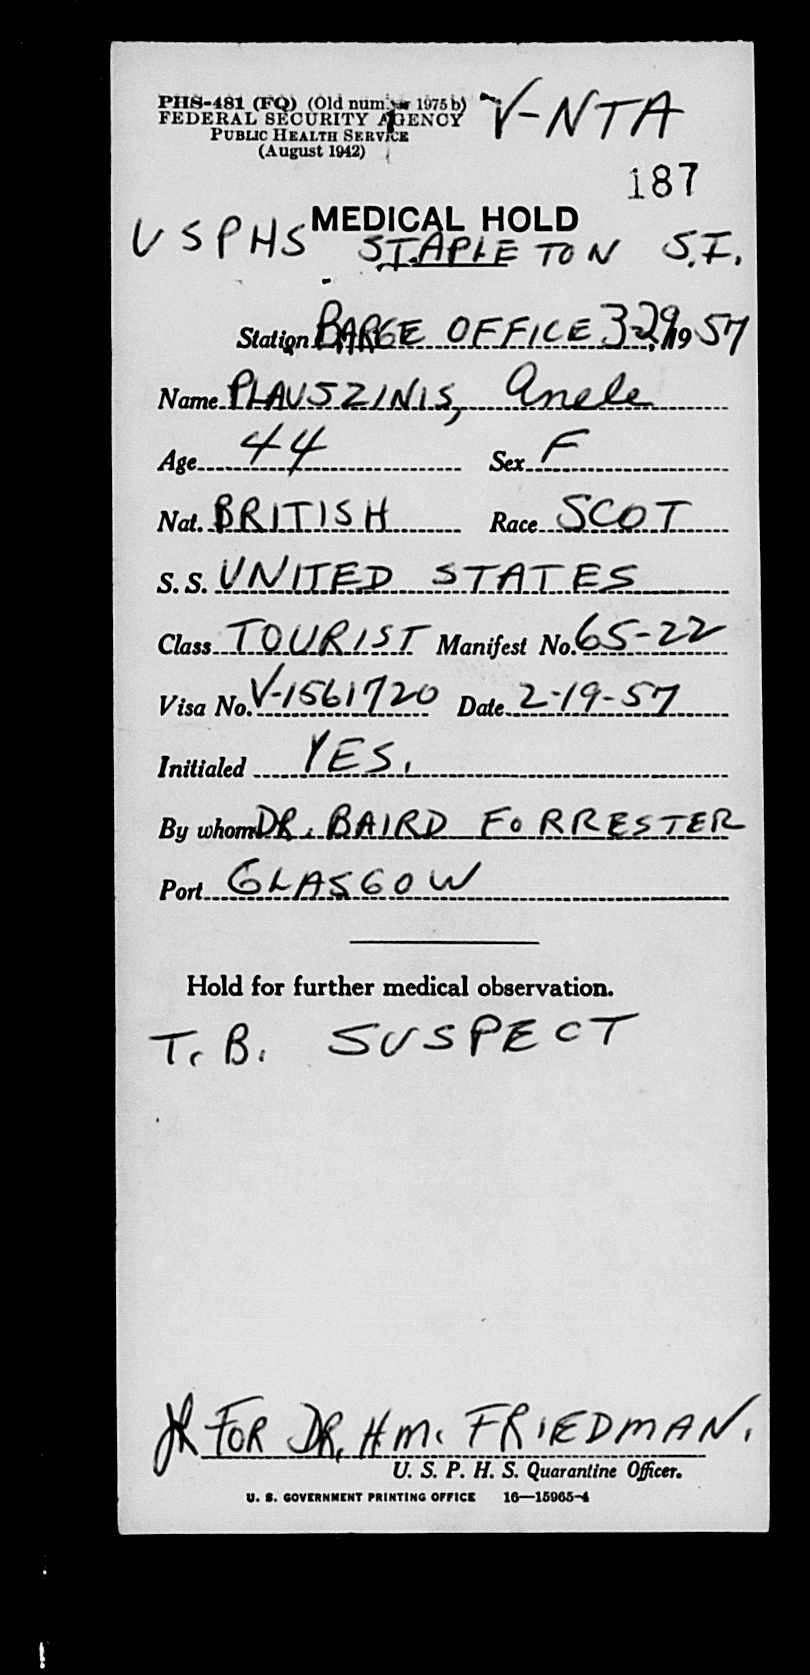 PHS-481 (FQ) (Old number 1975 b)
FEDERAL SECURITY AGENCY
PUBLIC HEALTH SERVICE
(August 1942)
V-NTA
187
MEDICAL HOLD
USPHS STAPLETON S.I.
Station BARGE OFFICE 3-29, 1957
Name PLAUSZINIS, Anele
Age 44 Sex F
Nat. BRITISH Race SCOT
S. S. UNITED STATES
Class TOURIST Manifest No. 65-22
Visa No. V-1561720 Date 2-19-57
Initialed YES.
By whom DR. BAIRD FORRESTER
Port GLASGOW
Hold for further medical observation.
T. B. SUSPECT
FOR DR. H.M. FRIEDMAN.
U. S. P. H. S. Quarantine Officer.
U. S. GOVERNMENT PRINTING OFFICE 16—15965-4